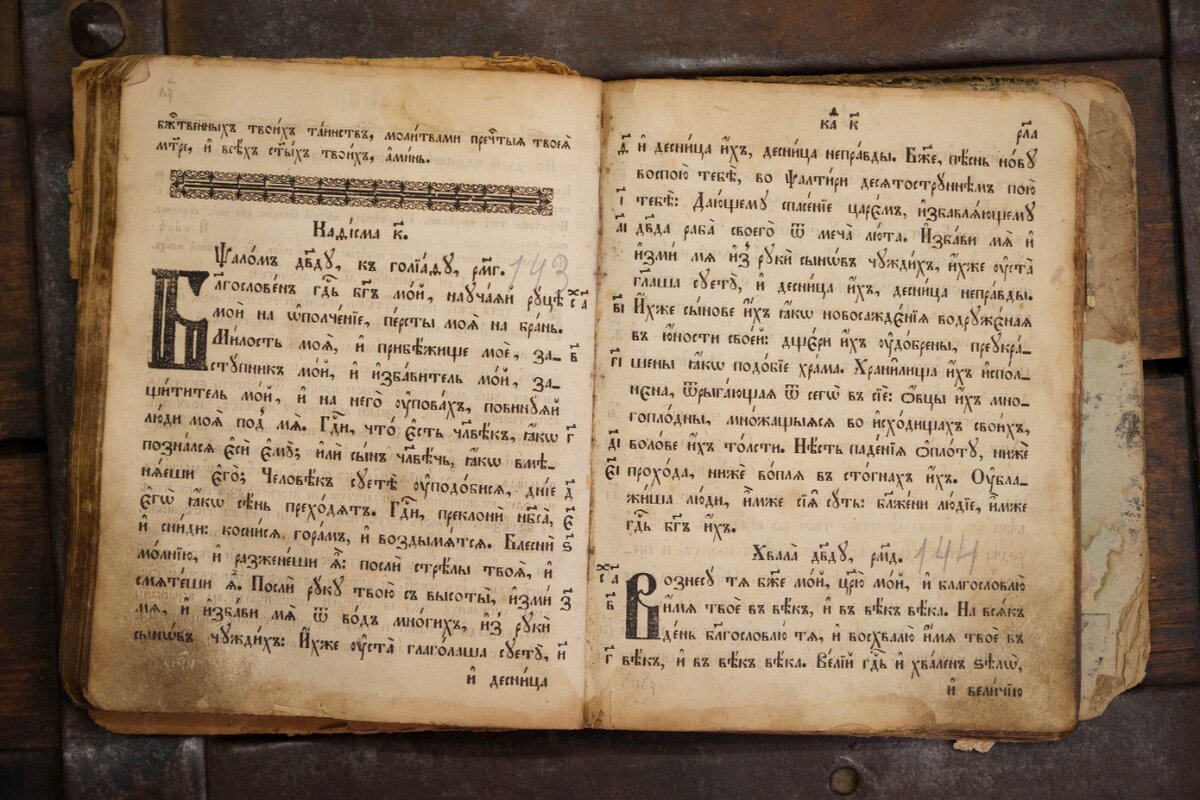 бжⷭ҇твенныхъ твои́хъ та́инствъ, моли́твами пречⷭ҇тыѧ твоеѧ̀
мт҃ре, и҆ всѣ́хъ ст҃ы́хъ твои́хъ, а҆ми́нь.
Каді́сма к҃.
Ѱало́мъ дв҃ду, къ голїа́ду, рм҃г. 143
Блгослове́нъ гдⷭ҇ь бг҃ъ мо́й, науча́ѧй руцѣ̀ а҃
мои̑ на ѡ҆полче́нїе, пе́рсты моѧ̑ на бра́нь.
Ми́лость моѧ̀, и҆ прибѣ́жище моѐ, за- в҃
сту́пникъ мо́й, и҆ и҆зба́витель мо́й, за-
щи́титель мо́й, и҆ на него̀ ᲂу҆пова́хъ, повину́ѧй
лю́ди моѧ̑ под̾ мѧ̀. Гдⷭ҇и, что̀ є҆́сть чл҃вѣ́къ, ꙗ҆́кѡ г҃
позна́лсѧ є҆сѝ є҆мꙋ̀; и҆лѝ сы́нъ чл҃вѣ́чь, ꙗ҆́кѡ вмѣ-
нѧ́еши є҆го̀; Человѣ́къ суетѣ̀ ᲂу҆подо́бисѧ, дні́е д҃
є҆гѡ̀ ꙗ҆́кѡ сѣ́нь прехо́дѧтъ. Гдⷭ҇и, преклонѝ нб҃са̀, є҃
и҆ сни́ди: косни́сѧ гора́мъ, и҆ воздымѧ́тсѧ. Блеснѝ ѕ҃
мо́лнїю, и҆ разжене́ши ѧ҆̀: послѝ стрѣ́лы твоѧ̑, и҆
смѧте́ши ѧ҆̀. Послѝ ру́ку твою̀ съ высоты̀, и҆змѝ з҃
мѧ̀, и҆ и҆зба́ви мѧ̀ ѿ во́дъ мно́гихъ, и҆з̾ рукѝ
сынѡ́въ чꙋжди́хъ: И҆́хже ᲂу҆ста̀ глаго́лаша суетꙋ̀, и҆ и҃
и҆ десни́ца
кⷶ҇а к҃
рл҃а
д҃ и҆ десни́ца и҆́хъ, десни́ца непра́вды. Бж҃е, пѣ́снь но́ву
воспою̀ тебѣ̀, во ѱалти́ри десѧтостру́ннѣмъ пою̀
і҃ тебѣ̀: Даю́щему спасе́нїе царє́мъ, и҆збавлѧ́ющему
а҃і дв҃да раба̀ своего̀ ѿ меча̀ лю́та. И҆зба́ви мѧ̀ и҆
и҆змѝ мѧ и҆з̾ рукѝ сынѡ́въ чужди́хъ, и҆́хже ᲂу҆ста̀
гл҃аша суетꙋ̀, и҆ десни́ца и҆́хъ, десни́ца непра́вды.
в҃і И҆́хже сы́нове и҆́хъ ꙗ҆́кѡ новосажде́нїѧ водруже́наѧ
въ ю҆́ности свое́й: дще́ри и҆́хъ ᲂу҆до́брены, преукра́-
г҃і шены ꙗ҆́кѡ подо́бїе хра́ма. Храни́лища и҆́хъ и҆спо́л-
нєна, ѿрыга́ющаѧ ѿ сегѡ̀ въ сїѐ: Ѻ҆́вцы и҆́хъ мно-
гопло́дны, мно́жащыѧсѧ во и҆схо́дищахъ свои́хъ,
д҃і воло́ве и҆́хъ то́лсти. Нѣ́сть паде́нїѧ ѻ҆пло́ту, нижѐ
є҃і прохо́да, нижѐ во́плѧ въ сто́гнахъ и҆́хъ. Оу҆бла-
жи́ша лю́ди, и҆̀мже сїѧ̑ су́ть: бл҃же́ни лю́дїе, и҆̀мже
гдⷭ҇ь бг҃ъ и҆́хъ.
Хвала̀ дв҃ду, рм҃д. 144
а҃ Вознесу́ тѧ бж҃е мо́й, цр҃ю̀ мо́й, и҆ благословлю̀
в҃ и҆́мѧ твоѐ въ вѣ́къ, и҆ въ вѣ́къ вѣ́ка. На всѧ́къ
де́нь бл҃гословлю̀ тѧ̀, и҆ восхвалю̀ и҆́мѧ твоѐ въ
г҃ вѣ́къ, и҆ въ вѣ́къ вѣ́ка. Ве́лїй гдⷭ҇ь и҆ хва́ленъ ѕѣлѡ̀,
и҆ вели́чїю